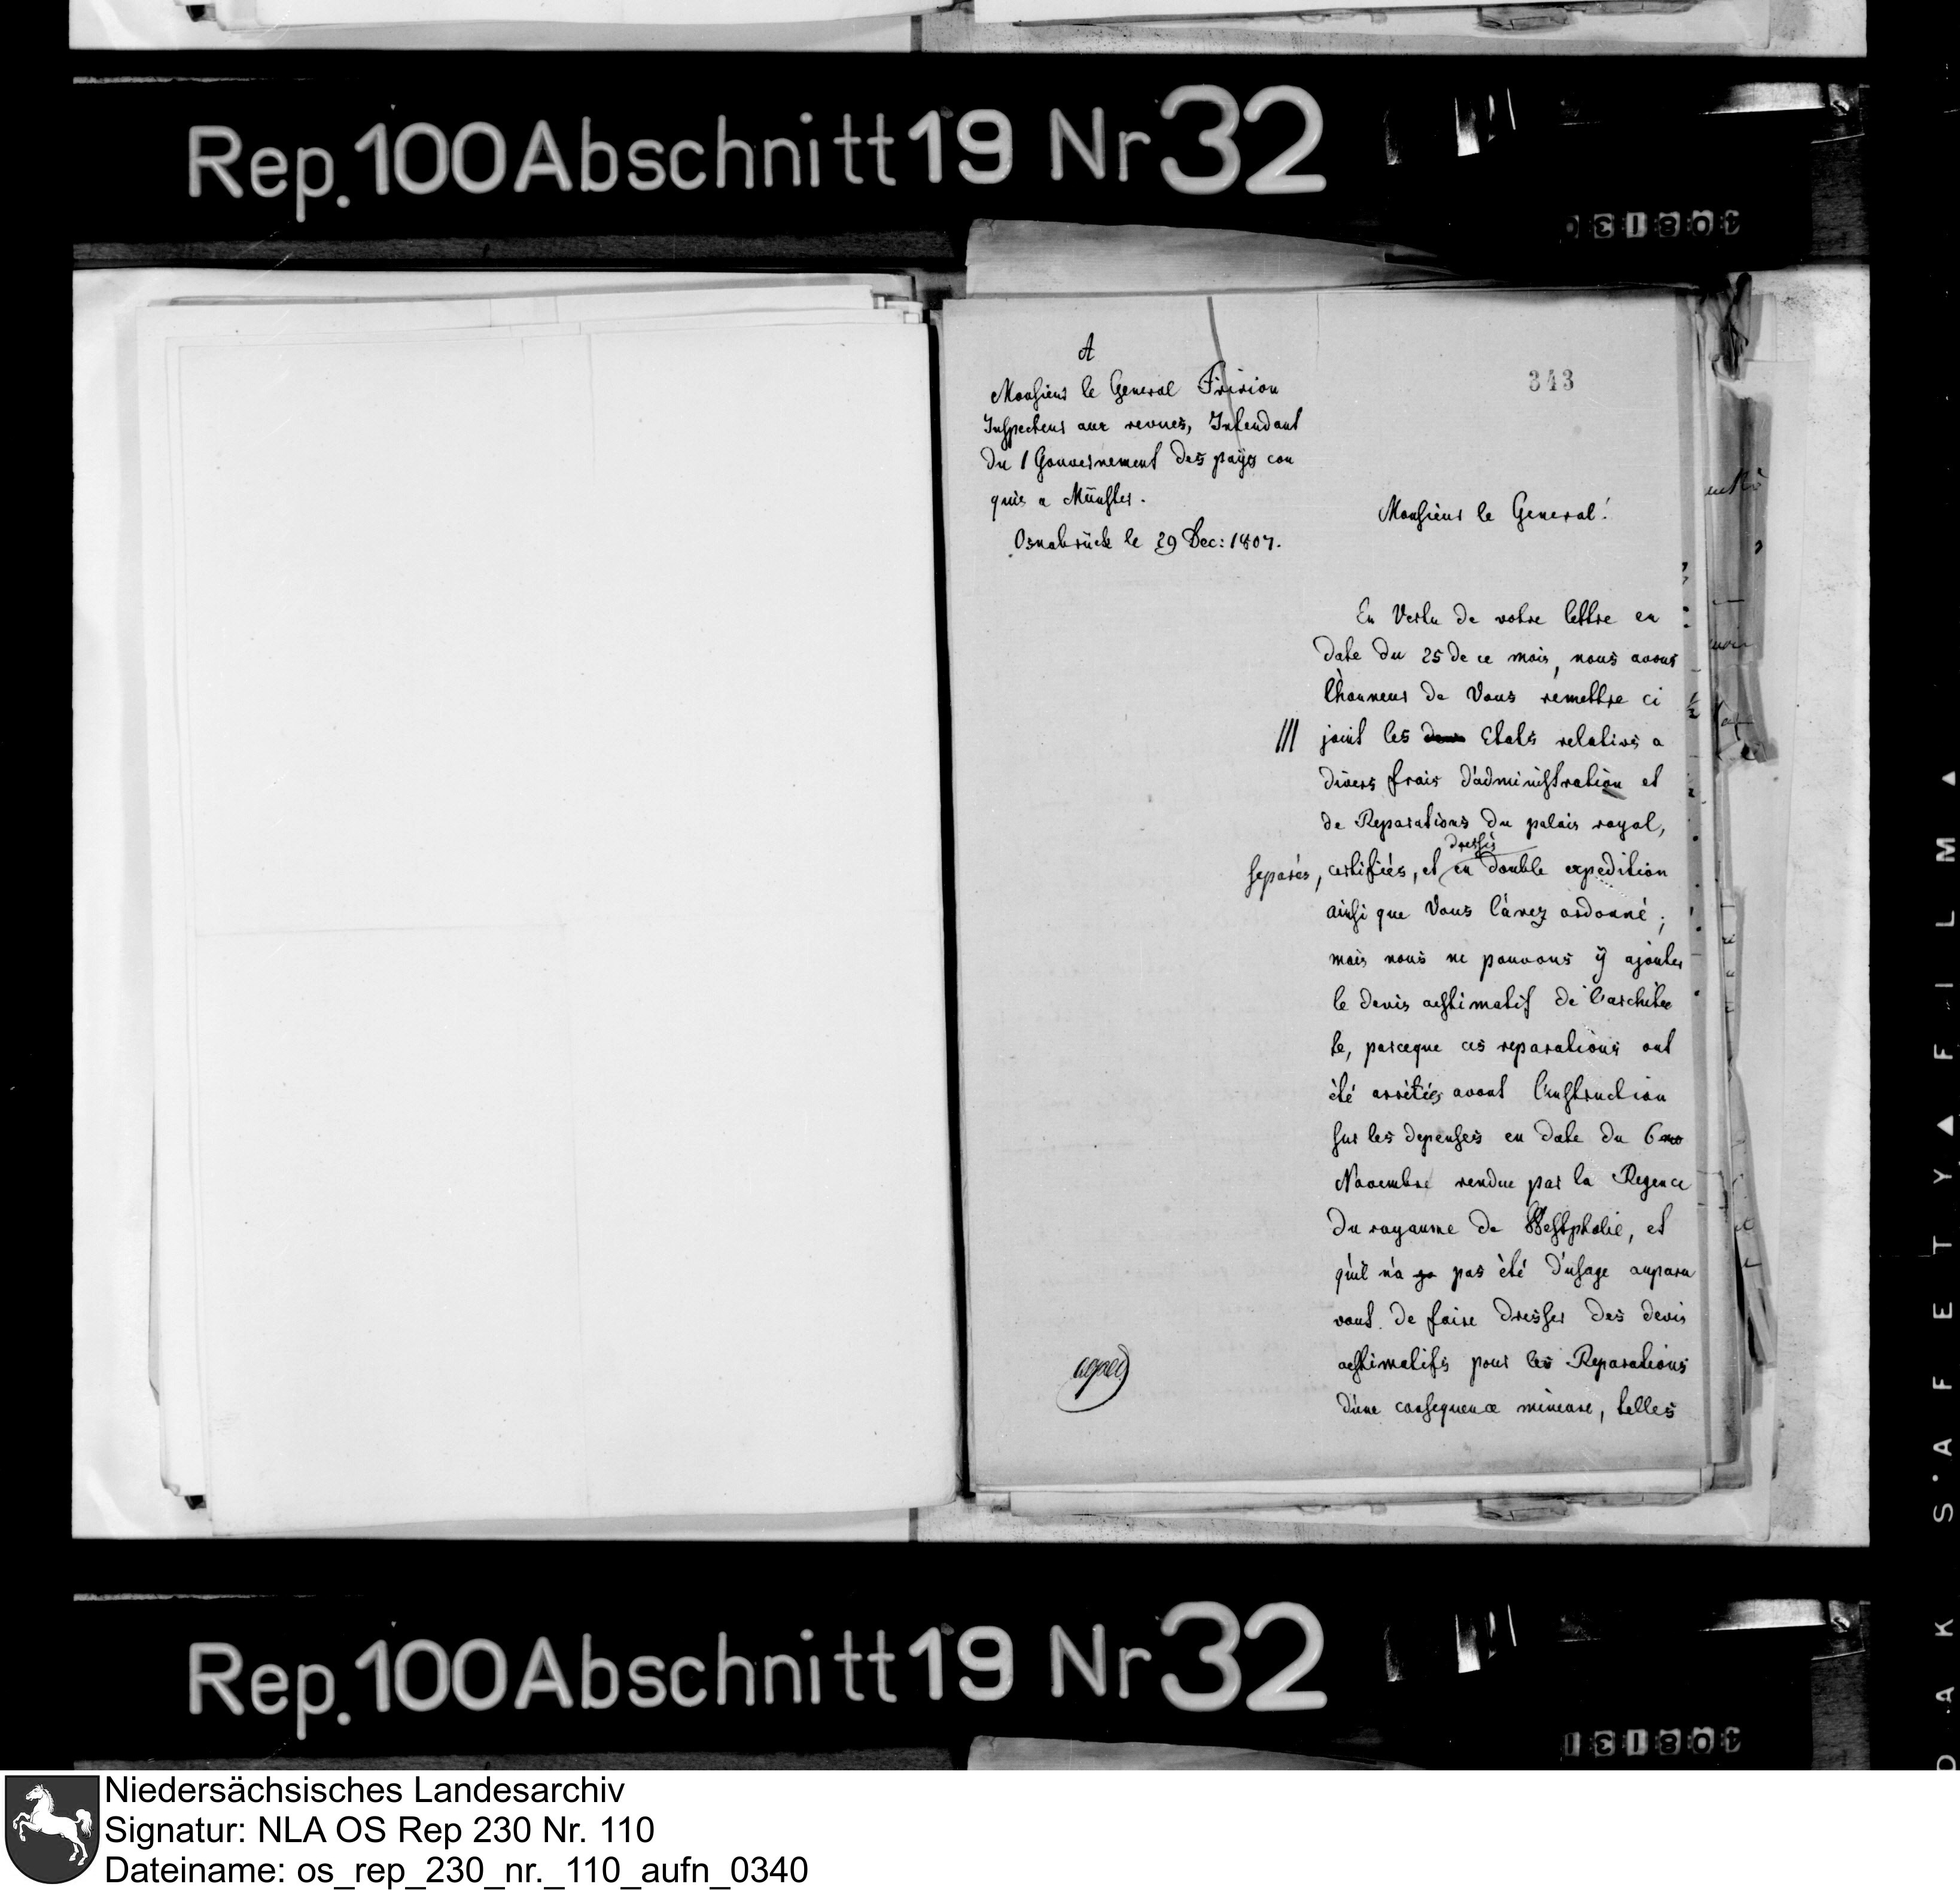 Rep. 100 Abschnitt 19 Nr 32
343
A
Monsieur le General Fririon
Inspecteur aux revues, Intendant
du 1 Gouvernement des paÿs con
quis a Münster.
Osnabrück le 29 Dec: 1807.
Monsieur le General!
En Vertu de votre lettre en
date du 25 de ce mois, nous avons
l'honneur de Vous remettre ci
/// joint les deux Etats relativs a
divers frais d'administration et
de Reparations du palais royal,
dressés
separés, certifiés, et en double expedition
ainsi que Vous l'avez ordonné;
mais nous ne pouvons ÿ ajouter
le devis aestimatif de l'architec
te, parceque ces reparations ont
été arrêtées avant l'instruction
sur les depenses en date du 6
Novembre rendue par la Regence
du royaume de Westphalie, et
qu'il n'a pas été d'usage aupara
vant de faire dresser des devis
aestimatifs pour les Reparations
d'une consequence mineure, telles
Rep. 100 Abschnitt 19 Nr 32
SAFETY FILM
Niedersächsisches Landesarchiv
Signatur: NLA OS Rep 230 Nr. 110
Dateiname: os_rep_230_nr._110_aufn_0340